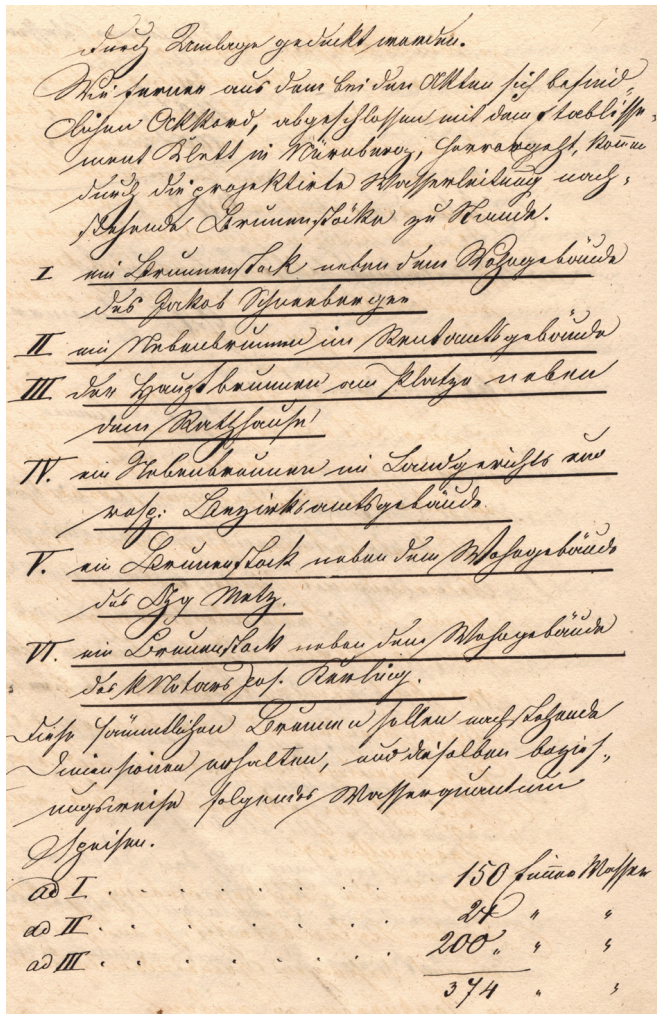 durch Umlage gedeckt werden.
Wie ferner aus dem bei den Akten sich befind„
lichen Akkord, abgeschlossen mit dem Etablisse„
ment Klett in Nürnberg, hervorgeht, kom̄en
durch die projektirte Wasserleitung nach„
stehende Brunenstöcke zu Stande.
I ein Brunnenstock neben dem Wohngebäude
des Jakob Schneeberger
II ein Nebenbrunnen im Rentamtsgebäude
III der Hauptbrunnen am Platze neben
dem Rathhause
IV. ein Nebenbrunnen im Landgerichts und
resp: Bezirksamtsgebäude
V. ein Brunenstock neben dem Wohngebäude
des Metz.
VI. ein Brunenstock neben dem Wohngebäude
des k Notars Jos.
Diese sämmtlichen Brunnen sollen nachstehende
Dimensionen erhalten, und dieselben bezieh„
ungsweise folgendes Wasserquantum
speisen.
ad I . . . . . . . . . 150 Eim̄er Wasser
ad II . . . . . . . . . 24 „ „
ad III . . . . . . . . . 200 „ „ „
374 „ „